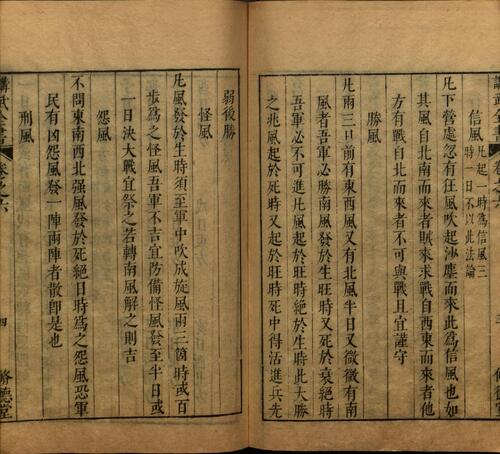 信風凡起一時為信風三
時一日不以此法論
凡下營處忽有狂風吹起沙塵而來此為信風也如
其風自北南而來者賊來求戰自西東而來者他
方有戰自北而來者不可與戰且宜謹守
勝風
凡雨三日前有東西風又有北風半日又微微有南
風者吾軍必勝南風發於生旺時又死於衰絕時
吾軍必不可進凡風起於旺時絕於生時此大勝
之兆風起於死時又起於旺時死中得活進兵先
弱後勝
怪風
凡風發於生時須至軍中吹成旋風兩三箇時或百
步為之怪風吾軍不吉宜防備怪風發至半日或
一日決大戰宜祭之若轉南風解之則吉
怨風
不問東南西北強風發於死絕日時為之怨風恐軍
民有凶怨風發一陣兩陣者散即是也
刑風
講武全書
卷之六
四
脩德堂